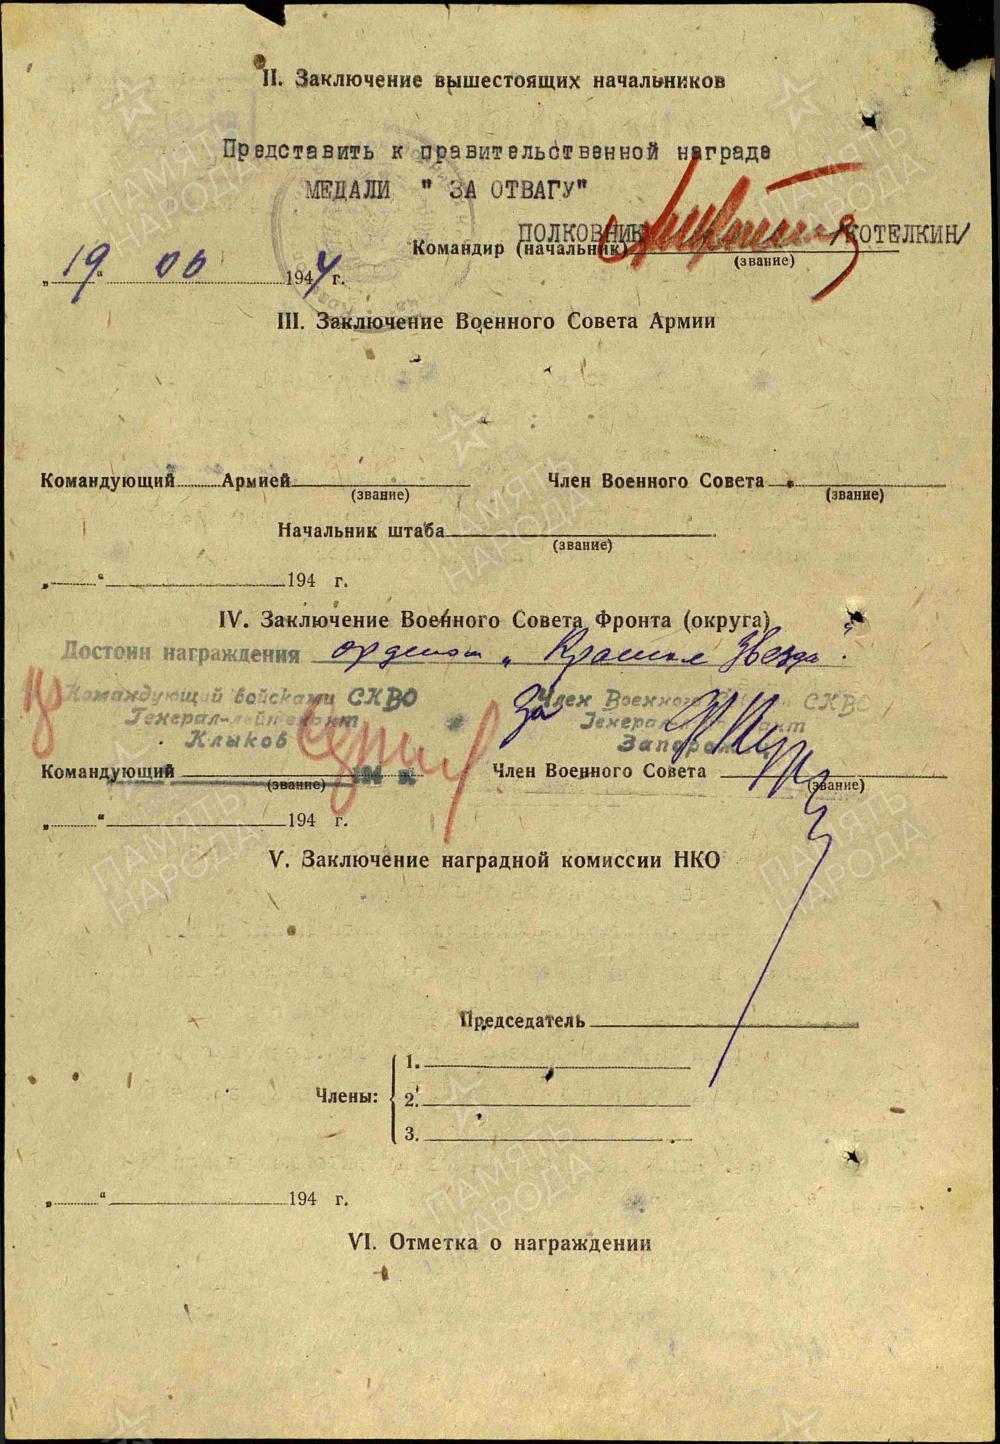 II. Заключение вышестоящих начальников
Представить к правительственной награде
МЕДАЛИ " ЗА ОТВАГУ"
ПОЛКОВНИК /КОТЕЛКИН/
Командир (начальник)
(звание)
„19“ 06 1944 г.
III. Заключение Военного Совета Армии
Командующий Армией
(звание)
Член Военного Совета
(звание)
Начальник штаба
(звание)
„ “ 194 г.
IV. Заключение Военного Совета Фронта (округа)
Достоин награждения орденом „Красная Звезда“.
Командующий войсками СКВО
Генерал-лейтенант
Клыков
За
Член Военного СКВО
Генерал
Командующий
(звание)
194
Член Военного Совета
(звание)
„ “ 194 г.
V. Заключение наградной комиссии НКО
Председатель
Члены:
1.
2.
3.
„ “ 194 г.
VI. Отметка о награждении
ПАМЯТЬ НАРОДА